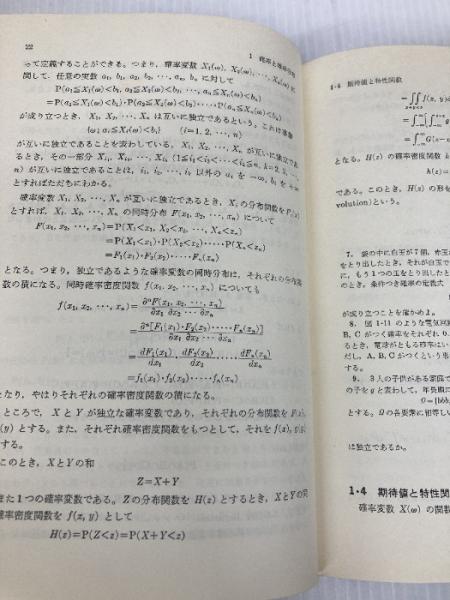 22
1 確率と確率分布
って定義することができる。つまり，確率変数 X₁(ω), X₂(ω), ⋯, Xₙ(ω) に
関して，任意の実数 a₁, b₁, a₂, b₂, ⋯, aₙ, bₙ に対して
P(a₁≦X₁(ω)<b₁, a₂≦X₂(ω)<b₂, ⋯, aₙ≦Xₙ(ω)<bₙ)
=P(a₁≦X₁(ω)<b₁)·P(a₂≦X₂(ω)<b₂)⋯⋯P(aₙ≦Xₙ(ω)<bₙ)
が成り立つとき，X₁, X₂, ⋯, Xₙ は互いに独立であるという。これは事象
{ω; aᵢ≦Xᵢ(ω)<bᵢ} (i=1, 2, ⋯, n)
が互いに独立であることを表わしている。X₁, X₂, ⋯, Xₙ が互いに独立であ
るとき，その一部分
n) が互いに独立であることは， 以外の aᵢ を −∞, bᵢ を +∞
とすればただちにわかる。
確率変数 X₁, X₂, ⋯, Xₙ が互いに独立であるとき，Xᵢ の分布関数を
とすれば，X₁, X₂, ⋯, Xₙ の同時分布 F(x₁, x₂, ⋯, xₙ) について
F(x₁, x₂, ⋯, xₙ)=P(X₁<x₁, X₂<x₂, ⋯, Xₙ<xₙ)
=P(X₁<x₁)·P(X₂<x₂)⋯⋯P(Xₙ<xₙ)
=F₁(x₁)·F₂(x₂)⋯⋯Fₙ(xₙ)
となる。つまり，独立であるような確率変数の同時分布は，それぞれの分布関
数の積になる。同時確率密度関数 f(x₁, x₂, ⋯, xₙ) についても
f(x₁, x₂, ⋯, xₙ)=∂ⁿF(x₁, x₂, ⋯, xₙ)/∂x₁ ∂x₂ ⋯ ∂xₙ
=∂ⁿ[F₁(x₁)·F₂(x₂)⋯⋯Fₙ(xₙ)]/∂x₁ ∂x₂ ⋯ ∂xₙ
=dF₁(x₁)/dx₁·dF₂(x₂)/dx₂⋯⋯dFₙ(xₙ)/dxₙ
=f₁(x₁)·f₂(x₂)⋯⋯fₙ(xₙ)
なり，やはりそれぞれの確率密度関数の積になる。
ところで，X と Y が独立な確率変数であり，それぞれの分布関数を F(x),
(y) とする。また，それぞれ確率密度関数をもつとして，それを f(x),
する。
このとき，X と Y の和
Z=X+Y
また1つの確率変数である。Z の分布関数を H(z) とするとき，X と Y の同
確率密度関数を f(x, y) として
H(z)=P(Z<z)=P(X+Y<z)
1·4 期待値と特性関数
=∬f(x, y)
x+y<z
となる。H(z) の確率密度関数
h(z)=
である。このとき，H(z) の形を
volution)という。
7. 袋の中に白玉が7個，赤玉
をとり出したとき，それが白玉で
に，もう1つの玉をとり出したと
のとき，条件つき確率の定義式
が成り立つことを確かめよ。
8. 図 1-11 のような電気回路
B, C がつく確率をそれぞれ 0.
るとき，電球がともる確率はい
だし，A, B, C がつくという事
9. 3人の子供がある家庭で
の子を g と表わして，年長順に
Ω={bbb,
とする。Ω の各要素に相等しい
は独立であるか。
1·4 期待値と特性関
確率変数 X(ω) の関数